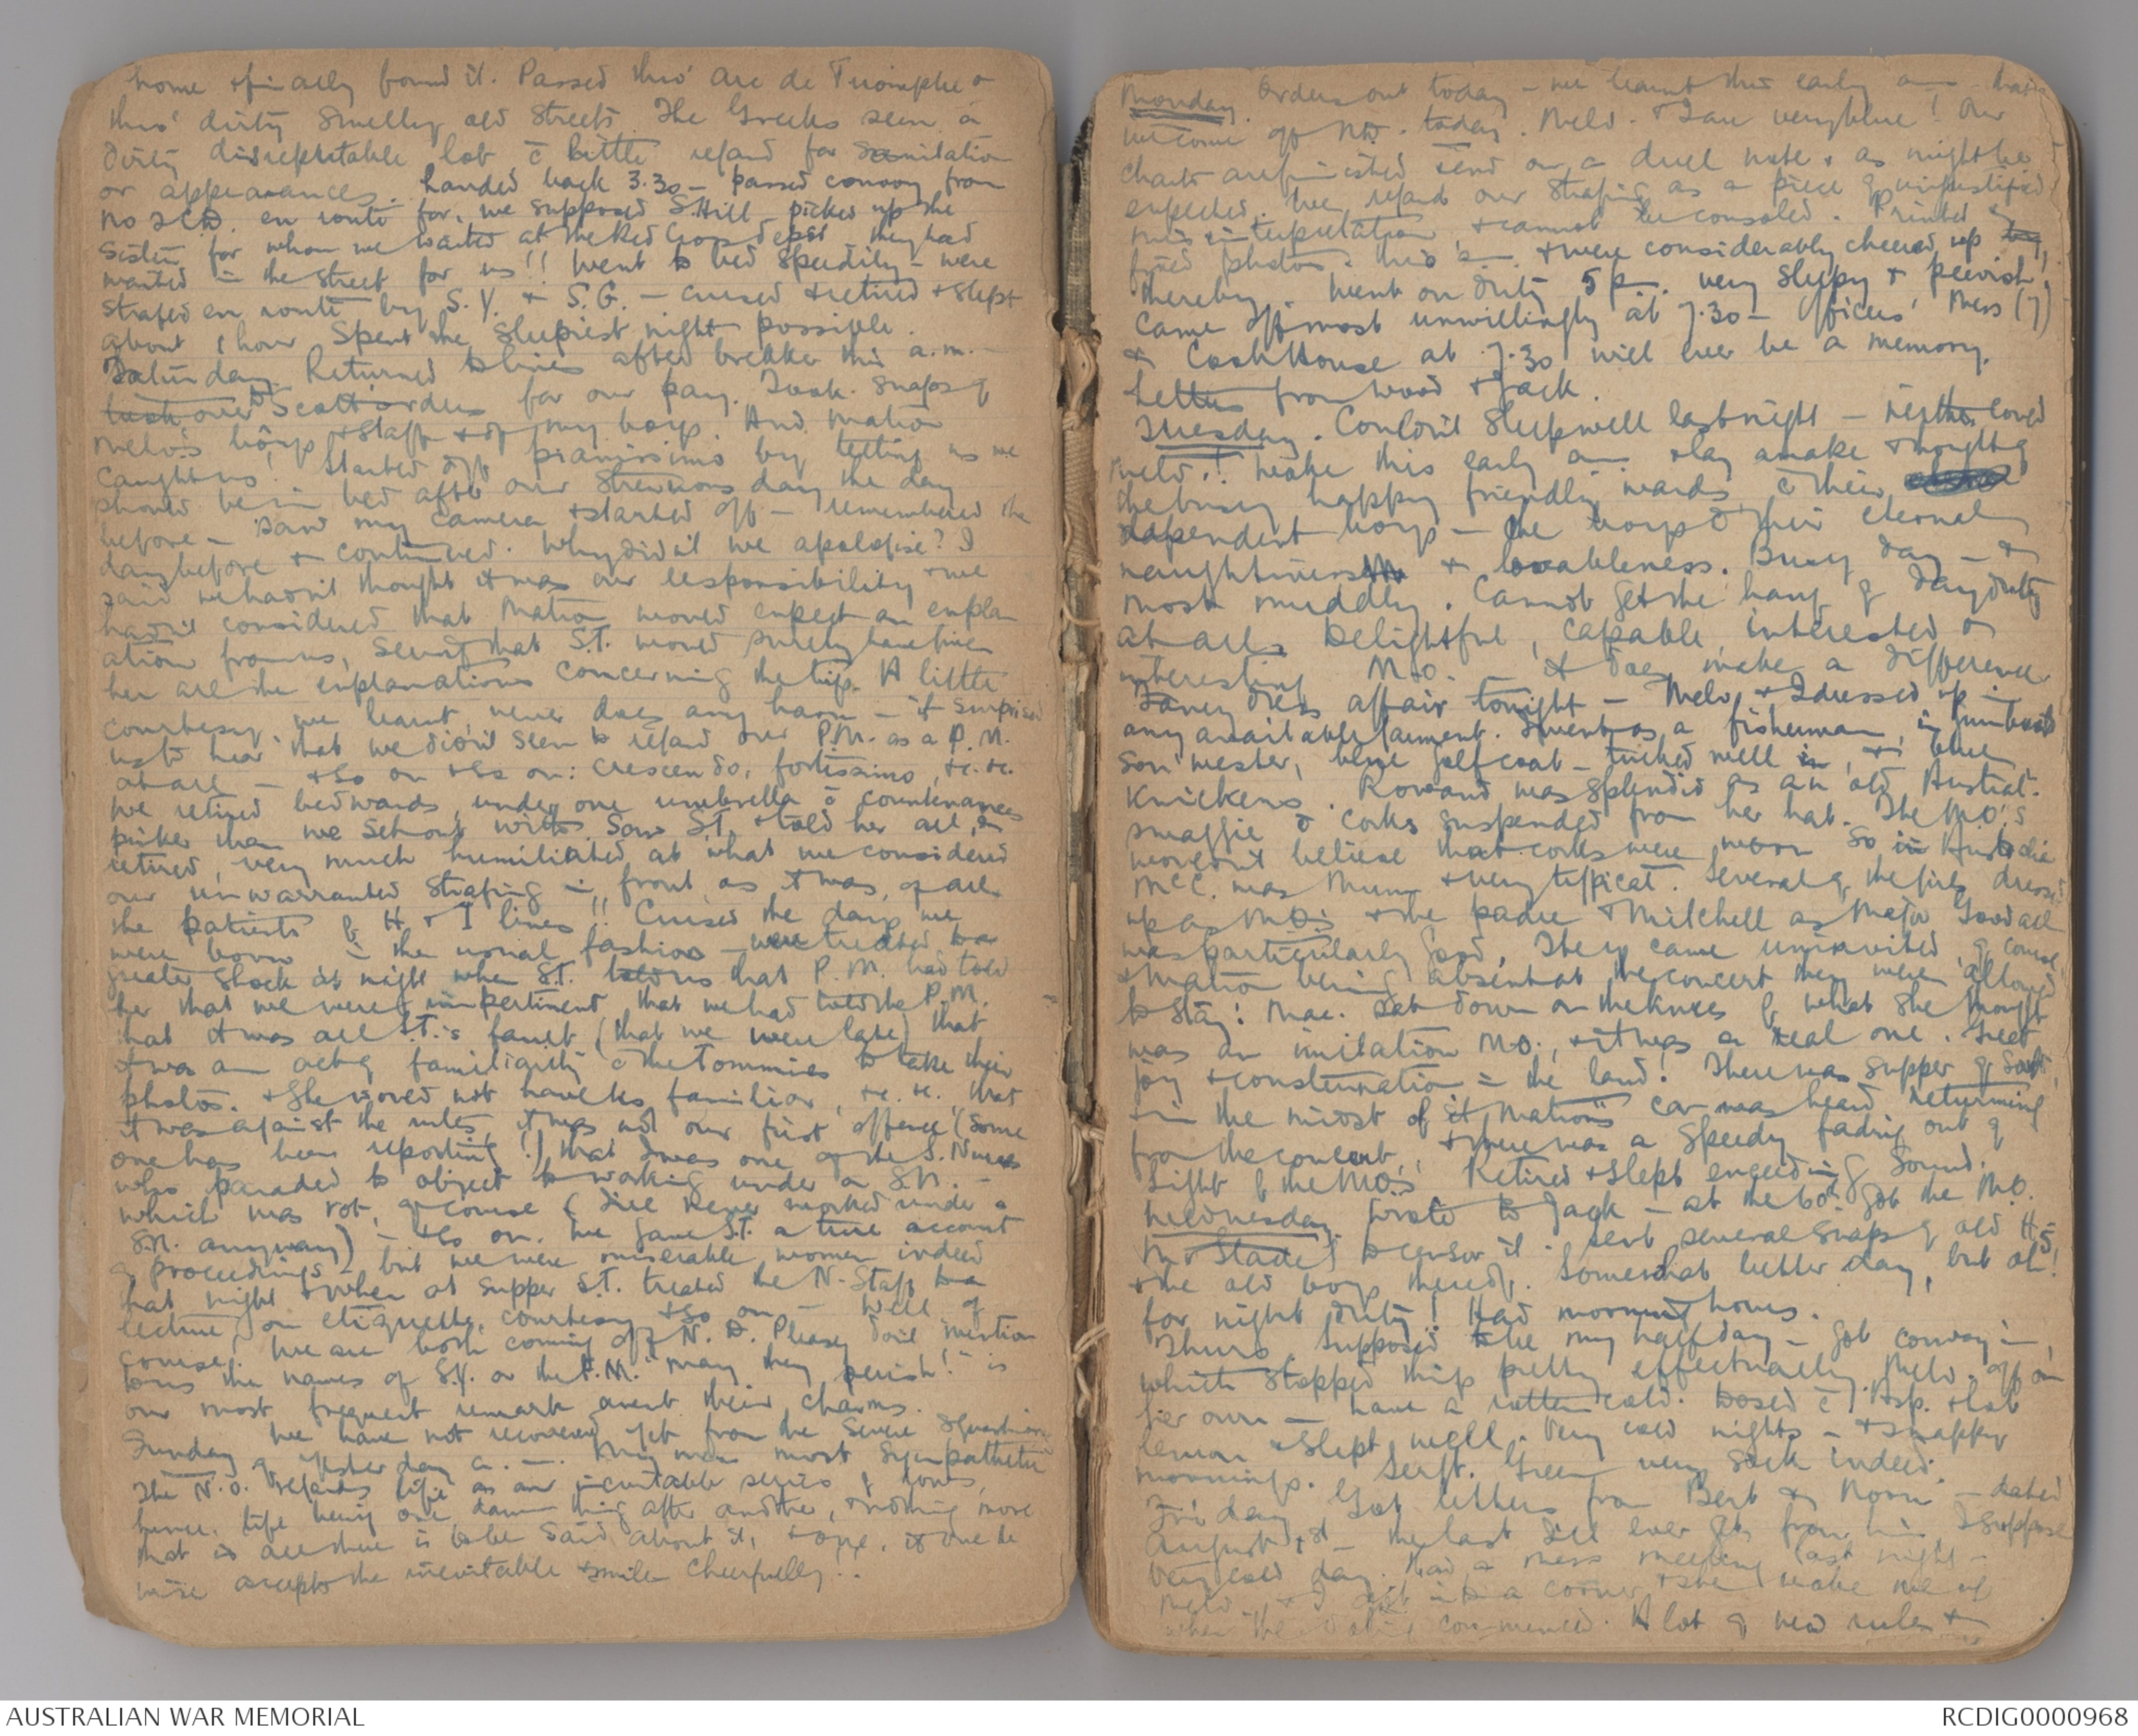 home & finally found it. Passed thro' Arc de Triomphe &
thro' dirty smelly old streets. The Greeks seem a
dirty disreputable lot c̄ little regard for sanitation
or appearances. Landed back 3.30 - passed convoy from
No 2 C.D. en route for, we supposed S. Hill - picked up the
Sisters for whom we waited at the Red Cross depot they had
waited in the street for us!! Went to bed speedily - were
strafed en route by S.Y. & S.G. - cursed & retired & slept
about 1 hour Spent the sleepiest night possible.
Saturday. Returned to lines after brekker this a.m. -
Scott orders for our pay. Took snaps of
Melv's boys & staff & of my boys. And Matron
caught us! Started off pianissimo by telling us we
should be in bed after our strenuous day the day
before - saw my camera & started off - remembered the
day before & continued. Why didn't we apologise? I
said we hadn't thought it was our responsibility & we
hadn't considered that Matron would expect an explan
ation from us, seeing that S.T. would surely have given
her all the explanations concerning the trip. A little
courtesy, we learnt, never does any harm - it surprised
us to hear that we didn't seem to regard our P.M. as a P.M.
at all - & so on & so on: crescendo, fortissimo, &c. &c.
We retired bedwards, under one umbrella c̄ countenances
pinker than we set out with. Saw S.T. & told her all, &
retired, very much humiliated at what we considered
our unwarranted strafing in front as it was, of all
the patients of H & I lines!! Cursed the day we
were born in the usual fashion - were treated to a
greater shock at night when S.T. told us that P.M. had told
her that we were impertinent, that we had told the P.M.
that it was all S.T.'s fault (that we were late) that
it was an act of familiarity c̄ the Tommies to take their
photos. & she would not have us familiar, &c. &c., that
it was against the rules, it was not our first offence (some
one has been reporting!) that I was one of the S. Nurses
who paraded to object to working under a S.N. -
which was rot, of course (I've never worked under a
S.N. anyway) - & so on. We gave S.T. a true account
of proceedings - but we were miserable women indeed
that night & when at supper S.T. treated the N-Staff to a
lecture on etiquette, courtesy & so on - well of
course! We are both coming off N.D. Please don't mention
to us the names of S.Y. or the P.M. "May they perish!" is
our most frequent remark anent their charms.
Sunday We have not recovered yet from the severe
of yesterday a.m. most sympathetic
The N.O. regards life as an inevitable series of
hence. life being one damn thing after another, & nothing more
that is all there is to be said about it, & one, if one be
wise accepts the inevitable & smiles cheerfully..
Monday. Orders out today - we learnt this early a.m. -
we come off N.D. today. Melv. & I are very blue! Our
charts are finished & end on a dull note & as might be
expected. We regard our strafing as a piece of unjustified
misinterpretation, & cannot be consoled. Printed &
fixed photos. this a.m. & were considerably cheered up
thereby. Went on duty 5 p.m. very sleepy & peevish.
Came off most unwillingly at 7.30 - Officers' Mess (7)
& Cookhouse at 7.30 will ever be a memory.
Letters from Wood & Jack.
Tuesday. Couldn't sleep well last night - neither could
Melv.! Woke this early a.m. & lay awake & thought of
the busy happy friendly wards c̄ their
dependent boys - the boys c̄ their eternal
naughtiness & lovableness. Busy day - &
most muddly. Cannot get the hang of day duty
at all. Delightful, capable, interested &
interesting M.O. - it does make a difference
Fancy dress affair tonight - Melv. & I dressed up in
any available garment. I went as a fisherman, in gumboots
sou'wester, blue golf coat - tucked well in, & blue
knickers. Rowand was splendid as an old Austral-
swaggie c̄ corks suspended from her hat. The M.O.'s
wouldn't believe that corks were worn so in Australia
McC. was Mum & very typical. Several of the girls dressed
up as M.O.'s & the padre & Mitchell as Major Goodall
was particularly good. They came uninvited, of course,
& Matron being absent at the concert they were allowed
to stay! Mac. sat down on the knees of what she thought
was an imitation M.O., & it was a real one. Great
joy & consternation in the land! There was supper of sorts,
& in the midst of it Matron's car was heard returning
from the concert, & there was a speedy fading out of
sight of the M.O.'s. Retired & slept exceeding sound.
Wednesday. Wrote to Jack - at the 60th. Got the M.O.
Mr Slade to censor it. Sent several snaps of old H5
& the old boys thereof. Somewhat better day, but oh!
for night duty! Had morning hours.
Thurs. Supposed to be my half day - got convoy in,
which stopped things pretty effectually. Melv. off on
her own - have a rotten cold. Dosed c̄ Asp. & hot
lemon & slept well. Very cold nights - & snappy
mornings. Sergt. Green very sick indeed.
Friday. Got letters from Bert & Norm - dated
August 1st - the last I'll ever get from him I suppose
Very cold day. Had a mess meeting last night -
Melv. & I got into a corner & she woke me up
when the voting commenced. A lot of new rules &
AUSTRALIAN WAR MEMORIAL
RCDIG0000968